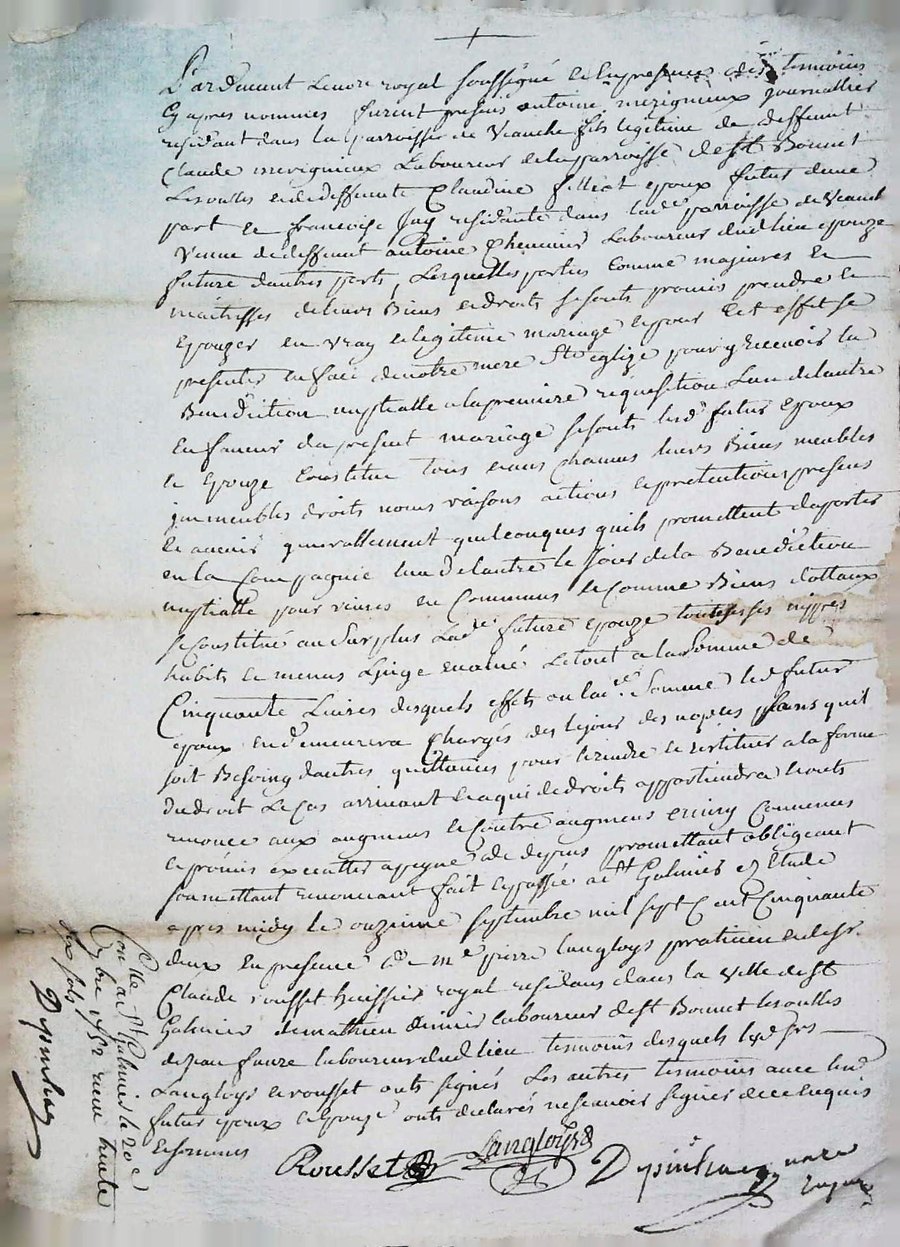 Pardevant Lenore royal soussigné et en presence des temoins
Cy apres nommés furent presens antoine merigneux journallier
residant dans la parroisse de Veauche fils legitime de deffunt
Claude merigneux Laboureur de la parroisse de St Bonnet
Les oulles et de deffunte Claudine époux futur dune
part et francoise residante dans lade parroisse de Veauche
Veuve de deffunt antoine Chemier Laboureur dud lieu epouze
future dautres parts, Lesquelles parties comme majeures et
maitresses de leurs Biens et droits se sonts promis prendre et
Epouzer en vray et legitime mariage et pour cet effet se
presenter en face de notre mere Ste eglize pour y recevoir la
Benediction nuptialle a la premiere requisition Lun de lautre
En faveur du present mariage se sonts lesd futur epoux
et epouze Constitué tous et uns chacuns leurs Biens meubles
immeubles droits noms raisons actions et pretentions presens
Et avenir generallement quelconques quils promettent daporter
en la Compagnie lun de lautre le jour de la Benediction
nuptialle pour vivres en Communs et Comme Biens dottaux
se Constitué au surplus Lade future epouze toutes ses nippes
habits et menus Linge Le tout a la somme de
Cinquante Livres desquels effets ou lade somme led futur
epoux en demeurera Chargés des le jour des nopces sans quil
soit Besoing dautres quittances pour les rendre et restituer a la forme
du droit Le Cas arrivant et a qui de droits appartiendra
renonce aux augmens et Contre augmens ainsy Convenus
et promis executter a peyne de depens promettant obligeant
soumettant renoncant fait et passé a St Galmier Etude
apres midy le onzieme septembre mil sept Cent Cinquante
deux en presence de me pierre Langloys praticien et de sr
Claude rousset huissier royal residans dans la Ville de St
Galmier de mathieu laboureur de St Bonnet les oulles
de jean faure laboureur dud lieu temoins desquels lesd srs
Langloys et rousset onts signés Les autres temoins avec lesd
futur epoux et epouze onts declarés ne scavoir signer de ce enquis
et sommés
Rousset Langloys
Conlle a St Galmier le 20e
7bre 1752 recu trente
six sols